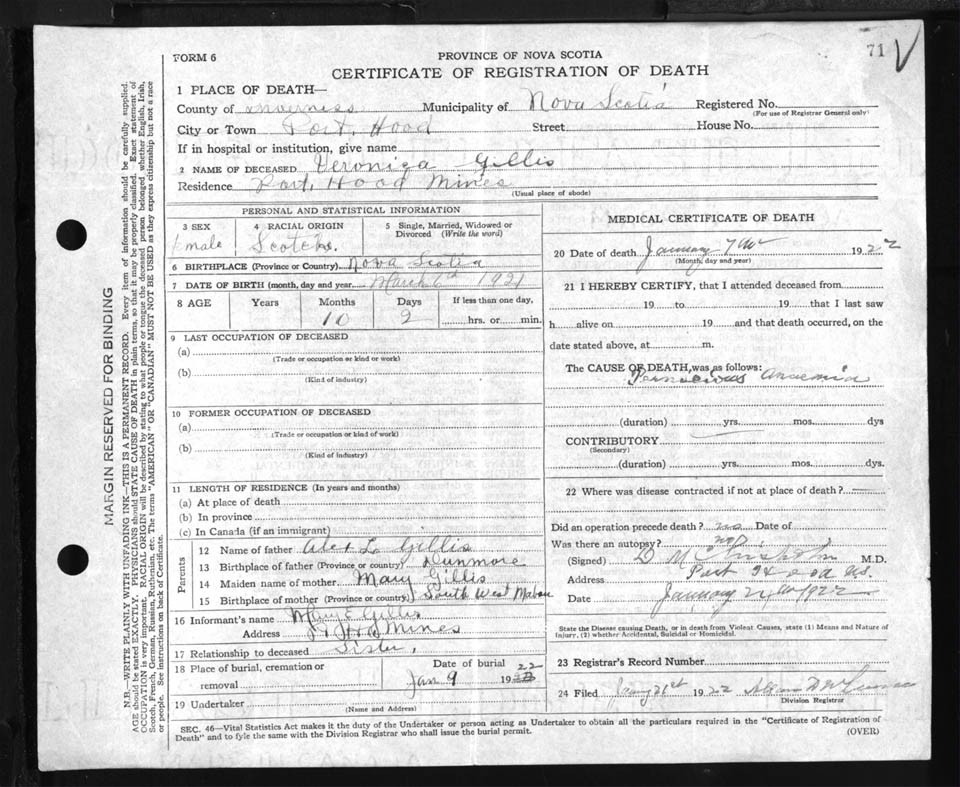 71 V
FORM 6
PROVINCE OF NOVA SCOTIA
CERTIFICATE OF REGISTRATION OF DEATH
1 PLACE OF DEATH—
County of Inverness Municipality of Nova Scotia Registered No.
(For use of Registrar General only)
City or Town Port Hood Street House No.
If in hospital or institution, give name
2 NAME OF DECEASED Veronica Gillis
Residence Port Hood Mines
(Usual place of abode)
PERSONAL AND STATISTICAL INFORMATION
3 SEX 4 RACIAL ORIGIN 5 Single, Married, Widowed or Divorced (Write the word)
male Scotch
6 BIRTHPLACE (Province or Country) Nova Scotia
7 DATE OF BIRTH (month, day and year) March 6th 1921
8 AGE Years Months Days If less than one day,
10 2 hrs. or min.
9 LAST OCCUPATION OF DECEASED
(a)
(Trade or occupation or kind or work)
(b)
(Kind of industry)
10 FORMER OCCUPATION OF DECEASED
(a)
(Trade or occupation or kind of work)
(b)
(Kind of industry)
11 LENGTH OF RESIDENCE (In years and months)
(a) At place of death
(b) In province
(c) In Canada (if an immigrant)
Parents
12 Name of father Alex L Gillis
13 Birthplace of father (Province or country) Dunmore
14 Maiden name of mother Mary Gillis
15 Birthplace of mother (Province or country) South West Mabou
16 Informant's name Mary E Gillis
Address Mines
17 Relationship to deceased Sister,
18 Place of burial, cremation or removal Date of burial
Jan 9 19 22
19 Undertaker
(Name and Address)
MEDICAL CERTIFICATE OF DEATH
20 Date of death January 7th 1922
(Month, day and year)
21 I HEREBY CERTIFY, that I attended deceased from
19 to 19 that I last saw
h alive on 19 and that death occurred, on the
date stated above, at m.
The CAUSE OF DEATH, was as follows:
Pernicious Anaemia
(duration) yrs. mos. dys
CONTRIBUTORY
(Secondary)
(duration) yrs. mos. dys.
22 Where was disease contracted if not at place of death?
Did an operation precede death? no Date of
Was there an autopsy? no
(Signed) D M Chisholm M.D.
Address Port Hood N.S.
Date January 1922
State the Disease causing Death, or in death from Violent Causes, state (1) Means and Nature of
Injury, (2) whether Accidental, Suicidal or Homicidal.
23 Registrar's Record Number
24 Filed 1922
Division Registrar
SEC. 46—Vital Statistics Act makes it the duty of the Undertaker or person acting as Undertaker to obtain all the particulars required in the "Certificate of Registration of
Death" and to fyle the same with the Division Registrar who shall issue the burial permit.
(OVER)
MARGIN RESERVED FOR BINDING
N.B.—WRITE PLAINLY WITH UNFADING INK—THIS IS A PERMANENT RECORD. Every item of information should be carefully supplied.
AGE should be stated EXACTLY. PHYSICIANS should STATE CAUSE OF DEATH in plain terms, so that it may be properly classified. Exact statement of
OCCUPATION is very important. RACIAL ORIGIN will be described by stating to what people or tongue the deceased person belonged, whether English, Irish,
Scotch, French, German, Russian, Ruthenian, etc. The terms "AMERICAN" OR "CANADIAN" MUST NOT BE USED as they express citizenship but not a race
or people. See instructions on back of Certificate.